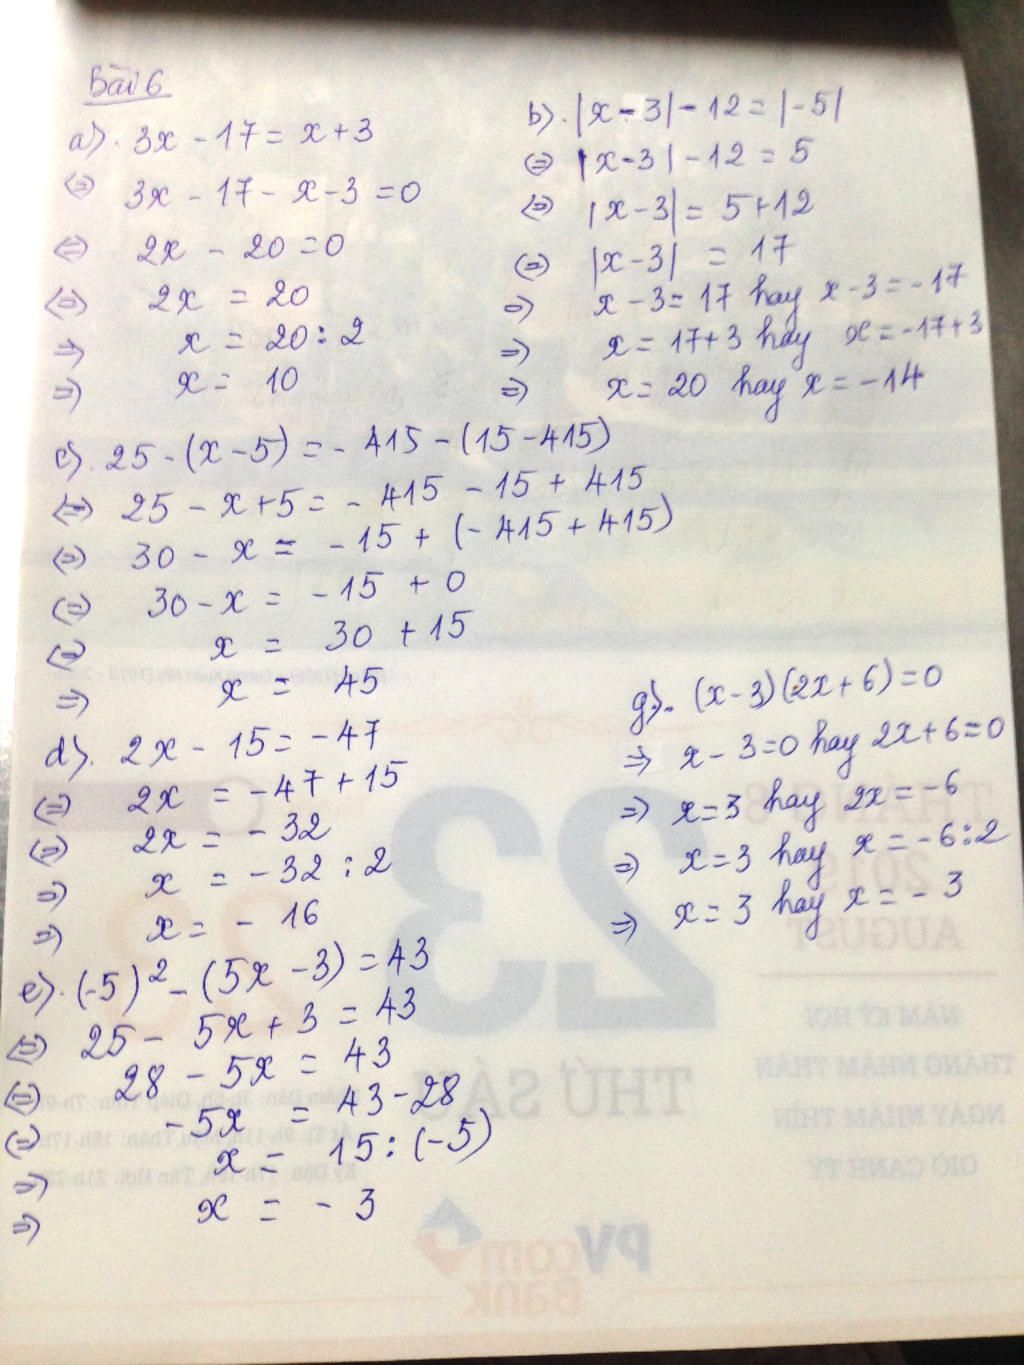 Bài 6
a). 3x - 17 = x + 3
⇔ 3x - 17 - x - 3 = 0
⇔ 2x - 20 = 0
⇔ 2x = 20
⇒ x = 20 : 2
⇒ x = 10
b). |x - 3| - 12 = |-5|
⇔ |x - 3| - 12 = 5
⇔ |x - 3| = 5 + 12
⇔ |x - 3| = 17
⇒ x - 3 = 17 hay x - 3 = -17
⇒ x = 17 + 3 hay x = -17 + 3
⇒ x = 20 hay x = -14
c). 25 - (x - 5) = - 415 - (15 - 415)
⇔ 25 - x + 5 = - 415 - 15 + 415
⇔ 30 - x = - 15 + (- 415 + 415)
⇔ 30 - x = - 15 + 0
⇔ x = 30 + 15
⇒ x = 45
d). 2x - 15 = - 47
⇔ 2x = - 47 + 15
⇔ 2x = - 32
⇒ x = - 32 : 2
⇒ x = - 16
e). (-5)² - (5x - 3) = 43
⇔ 25 - 5x + 3 = 43
⇔ 28 - 5x = 43
⇔ - 5x = 43 - 28
⇒ x = 15 : (-5)
⇒ x = - 3
g). (x - 3)(2x + 6) = 0
⇒ x - 3 = 0 hay 2x + 6 = 0
⇒ x = 3 hay 2x = - 6
⇒ x = 3 hay x = - 6 : 2
⇒ x = 3 hay x = - 3
THÁNG 8
2019
AUGUST
23
THỨ SÁU
NĂM KỶ HỢI
THÁNG NHÂM THÂN
NGÀY NHÂM THÌN
GIỜ CANH TÝ
PVcom
Bank